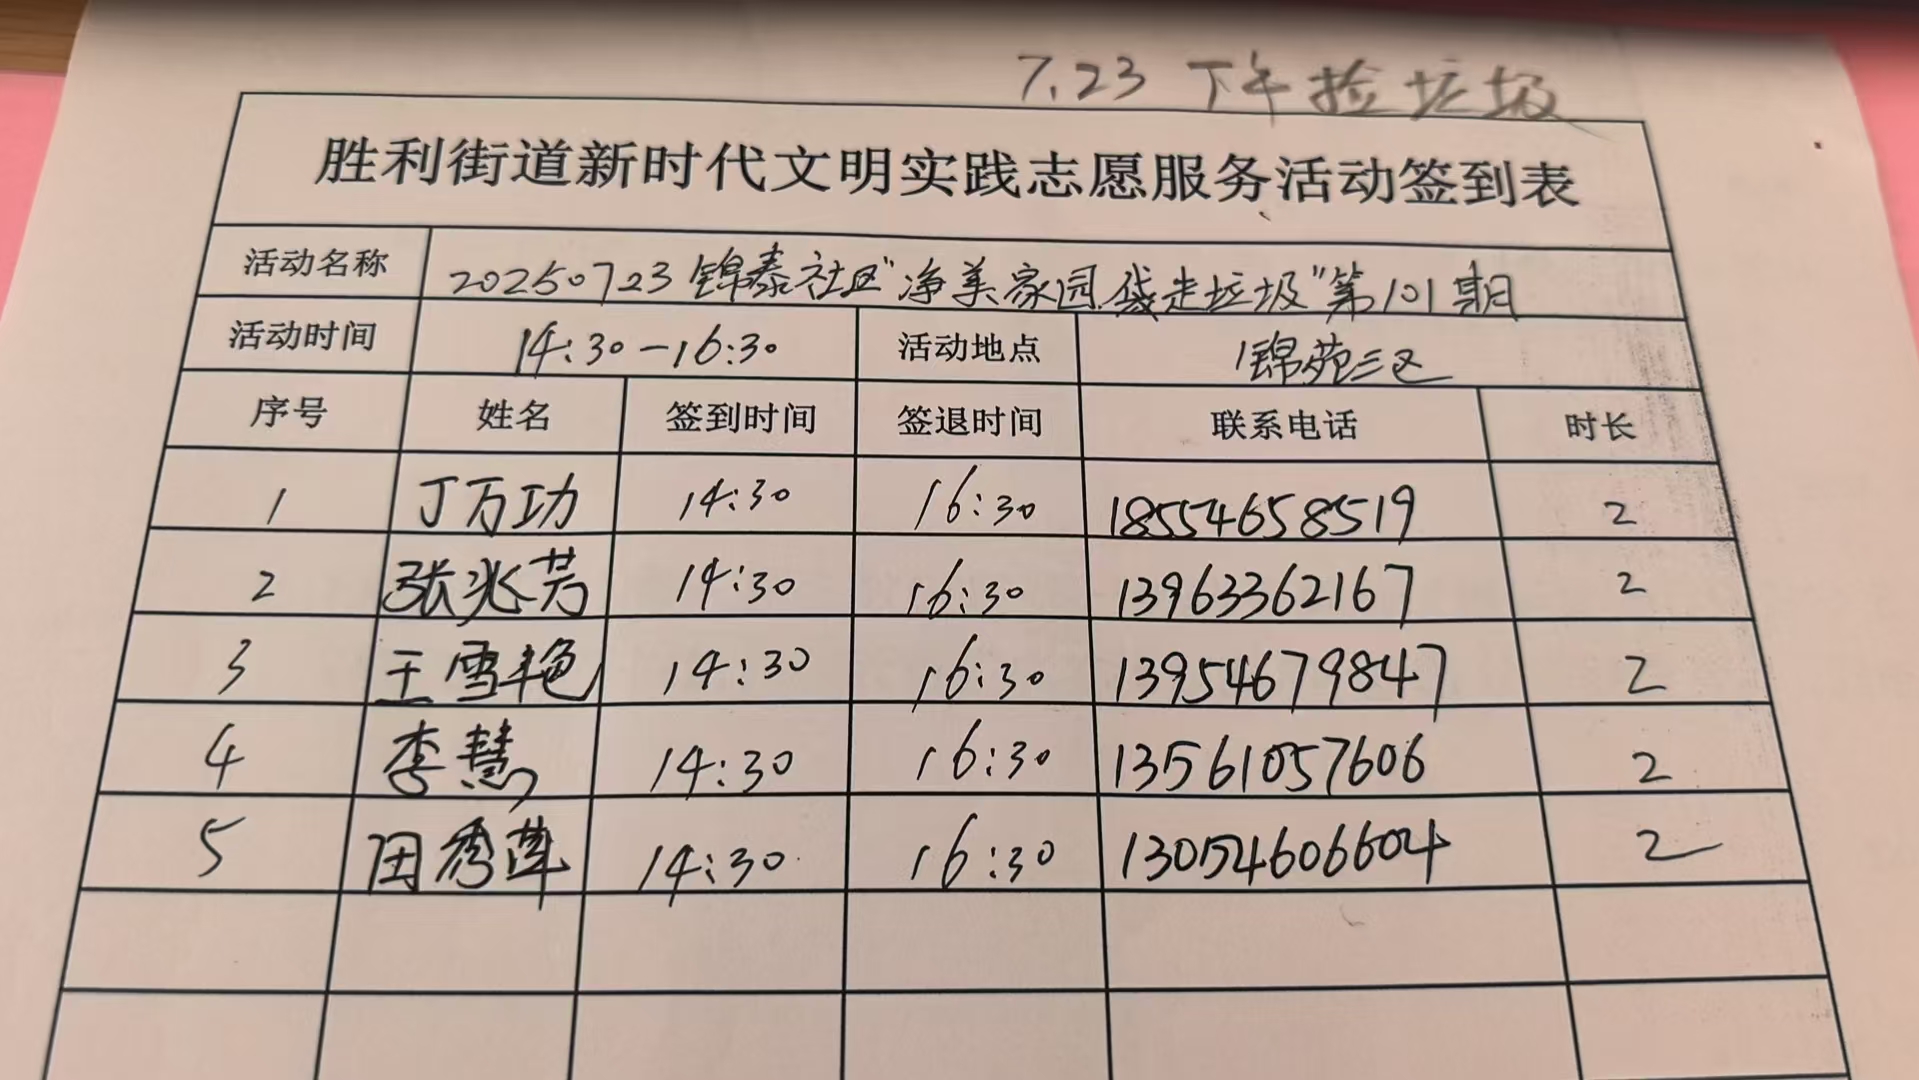 7.23 下午捡垃圾
胜利街道新时代文明实践志愿服务活动签到表
活动名称 20250723锦泰社区"净美家园.袋走垃圾"第101期
活动时间 14:30-16:30 活动地点 锦苑三区
序号 姓名 签到时间 签退时间 联系电话 时长
1 丁万功 14:30 16:30 18554658519 2
2 张兆芳 14:30 16:30 13963362167 2
3 王雪艳 14:30 16:30 13954679847 2
4 李慧 14:30 16:30 13561057606 2
5 田秀莲 14:30 16:30 13054606604 2